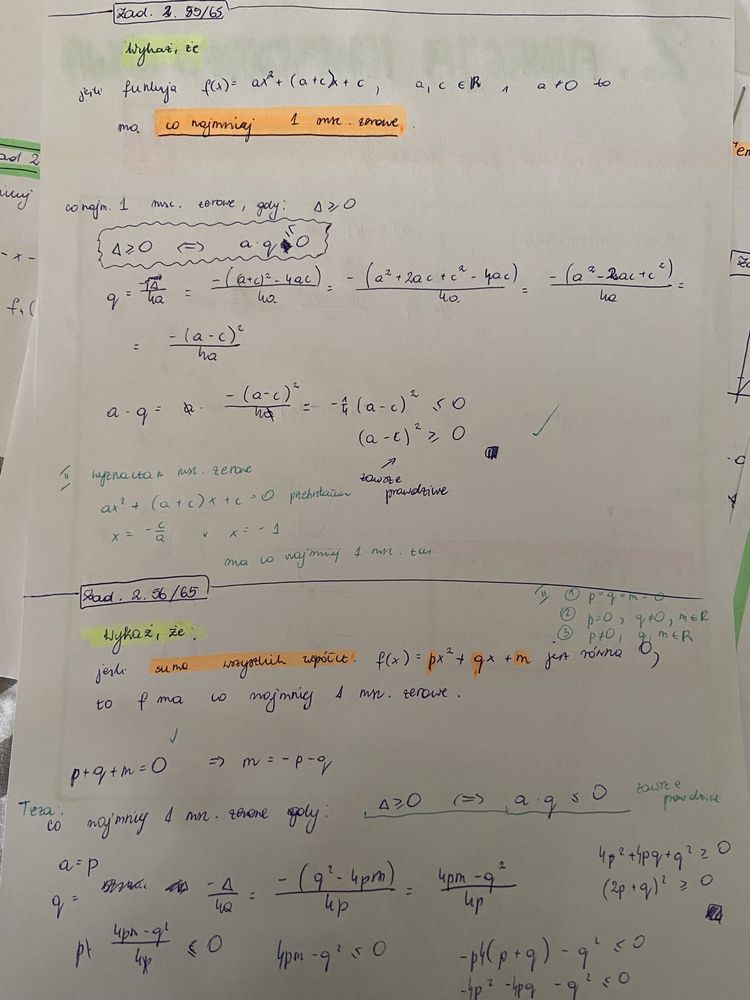 Zad. 2. 55/65
Wykaż, że
jeśli funkcja f(x) = ax² + (a+c)x + c, a, c ∈ R ∧ a ≠ 0 to
ma co najmniej 1 msc. zerowe.
co najm. 1 msc. zerowe, gdy: Δ ≥ 0
Δ ≥ 0 ⇔ a·q ≤ 0
q = -Δ/4a = -((a+c)² - 4ac)/4a = -(a² + 2ac + c² - 4ac)/4a = -(a² - 2ac + c²)/4a =
= -(a-c)²/4a
a·q = a · -(a-c)²/4a = -1/4 (a-c)² ≤ 0
(a-c)² ≥ 0
zawsze
prawdziwe
II wyznaczam msc. zerowe
ax² + (a+c)x + c = 0
x = -c/a ∨ x = -1
ma co najmniej 1 msc. zer.
Zad. 2. 56/65
II ① p = q = m = 0
② p=0, q≠0, m∈R
③ p≠0, q, m∈R
Wykaż, że:
jeśli suma wszystkich współcz. f(x) = px² + qx + m jest równa 0,
to f ma co najmniej 1 msc. zerowe.
p+q+m = 0 ⇒ m = -p-q
Teza:
co najmniej 1 msc. zerowe gdy: Δ ≥ 0 ⇔ a·q ≤ 0 zawsze
prawdziwe
a = p
q = -Δ/4a = -(q² - 4pm)/4p = (4pm - q²)/4p
4p² + 4pq + q² ≥ 0
(2p+q)² ≥ 0
p · (4pm - q²)/4p ≤ 0
4pm - q² ≤ 0
-p4(p+q) - q² ≤ 0
-4p² - 4pq - q² ≤ 0